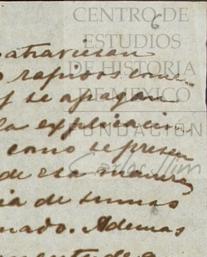 6
CENTRO DE
ESTUDIOS
DE HISTORIA
DE MÉXICO
FUNDACIÓN
Carlos Slim
atraviesan
rapidos como
y se apagan
la explicacion
como se presen
de esa manera
ia de sumas
nado. Ademas